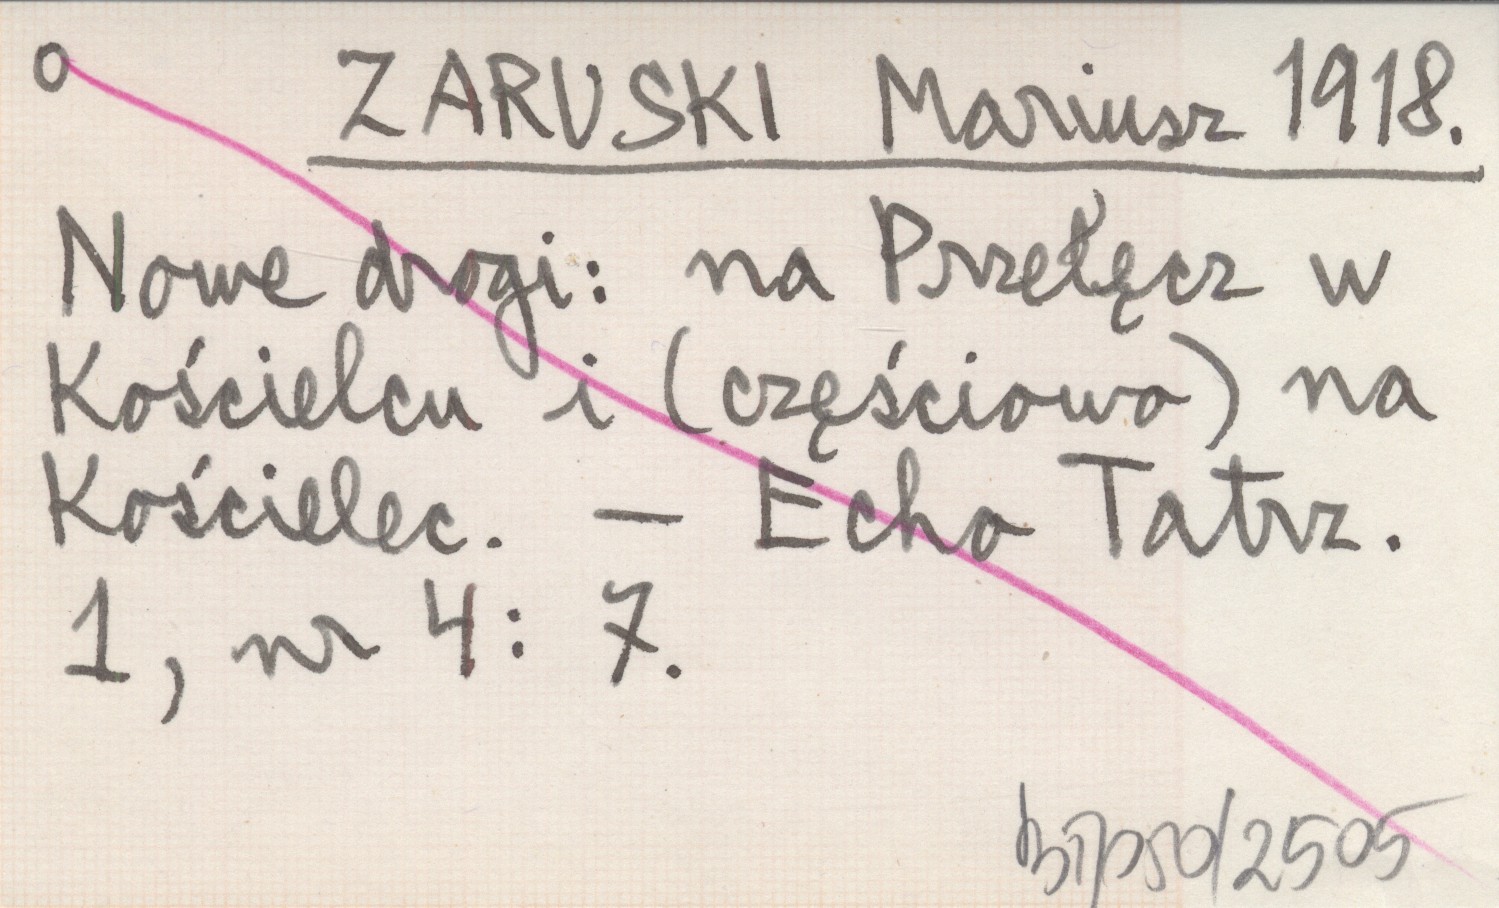 o ZARUSKI Mariusz 1918.
Nowe drogi: na Przełęcz w
Kościelcu i (częściowo) na
Kościelec. — Echo Tatrz.
1, nr 4: 7.
/2505